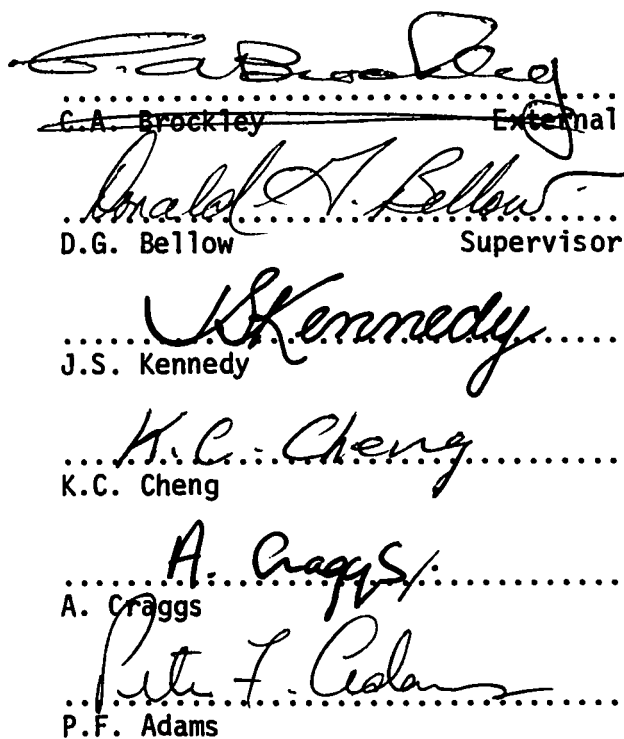 C. A. Brockley
C.A. Brockley External
Donald G. Bellow
D.G. Bellow Supervisor
JSKennedy
J.S. Kennedy
K. C. Cheng
K.C. Cheng
A. Craggs
A. Craggs
Peter F. Adams
P.F. Adams